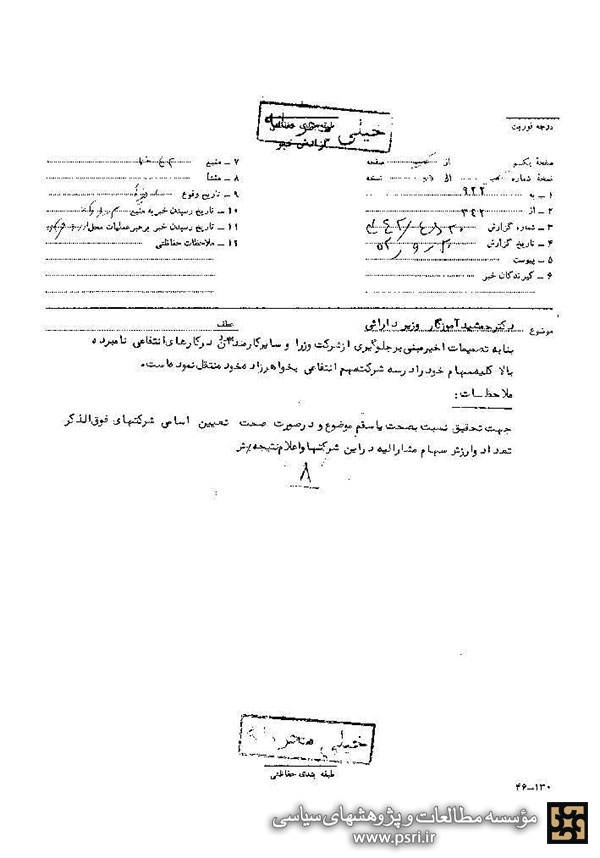 خیلی محرمانه
طبقه‌بندی حفاظتی
گزارش خبر
درجه فوریت
صفحه یکم از یک صفحه
نسخه شماره یک الی دو نسخه
۱ ـ به ۹۲۲
۲ ـ از ۳۴۲
۳ ـ شماره گزارش
۴ ـ تاریخ گزارش
۵ ـ پیوست
۶ ـ گیرندگان خبر
۷ ـ منبع
۸ ـ منشأ
۹ ـ تاریخ وقوع
۱۰ ـ تاریخ رسیدن خبر به منبع
۱۱ ـ تاریخ رسیدن خبر برهبر عملیات محل
۱۲ ـ ملاحظات حفاظتی
موضوع دکتر جمشید آموزگار وزیر دارائی عطف
بنا به تصمیمات اخیر مبنی بر جلوگیری از شرکت وزرا و سایر کارمندان در کارهای انتفاعی نامبرده
بالا کلیه سهام خود را در سه شرکت مهم انتفاعی بخواهرزاده خود منتقل نموده است.
ملاحظات:
جهت تحقیق نسبت بصحت یا سقم موضوع و در صورت صحت تعیین اسامی شرکتهای فوق‌الذکر
تعداد و ارزش سهام مشارالیه در این شرکتها و اعلام نتیجه
۸
خیلی محرمانه
طبقه بندی حفاظتی
۴۶-۱۳۰
مؤسسه مطالعات و پژوهشهای سیاسی
www.psri.ir